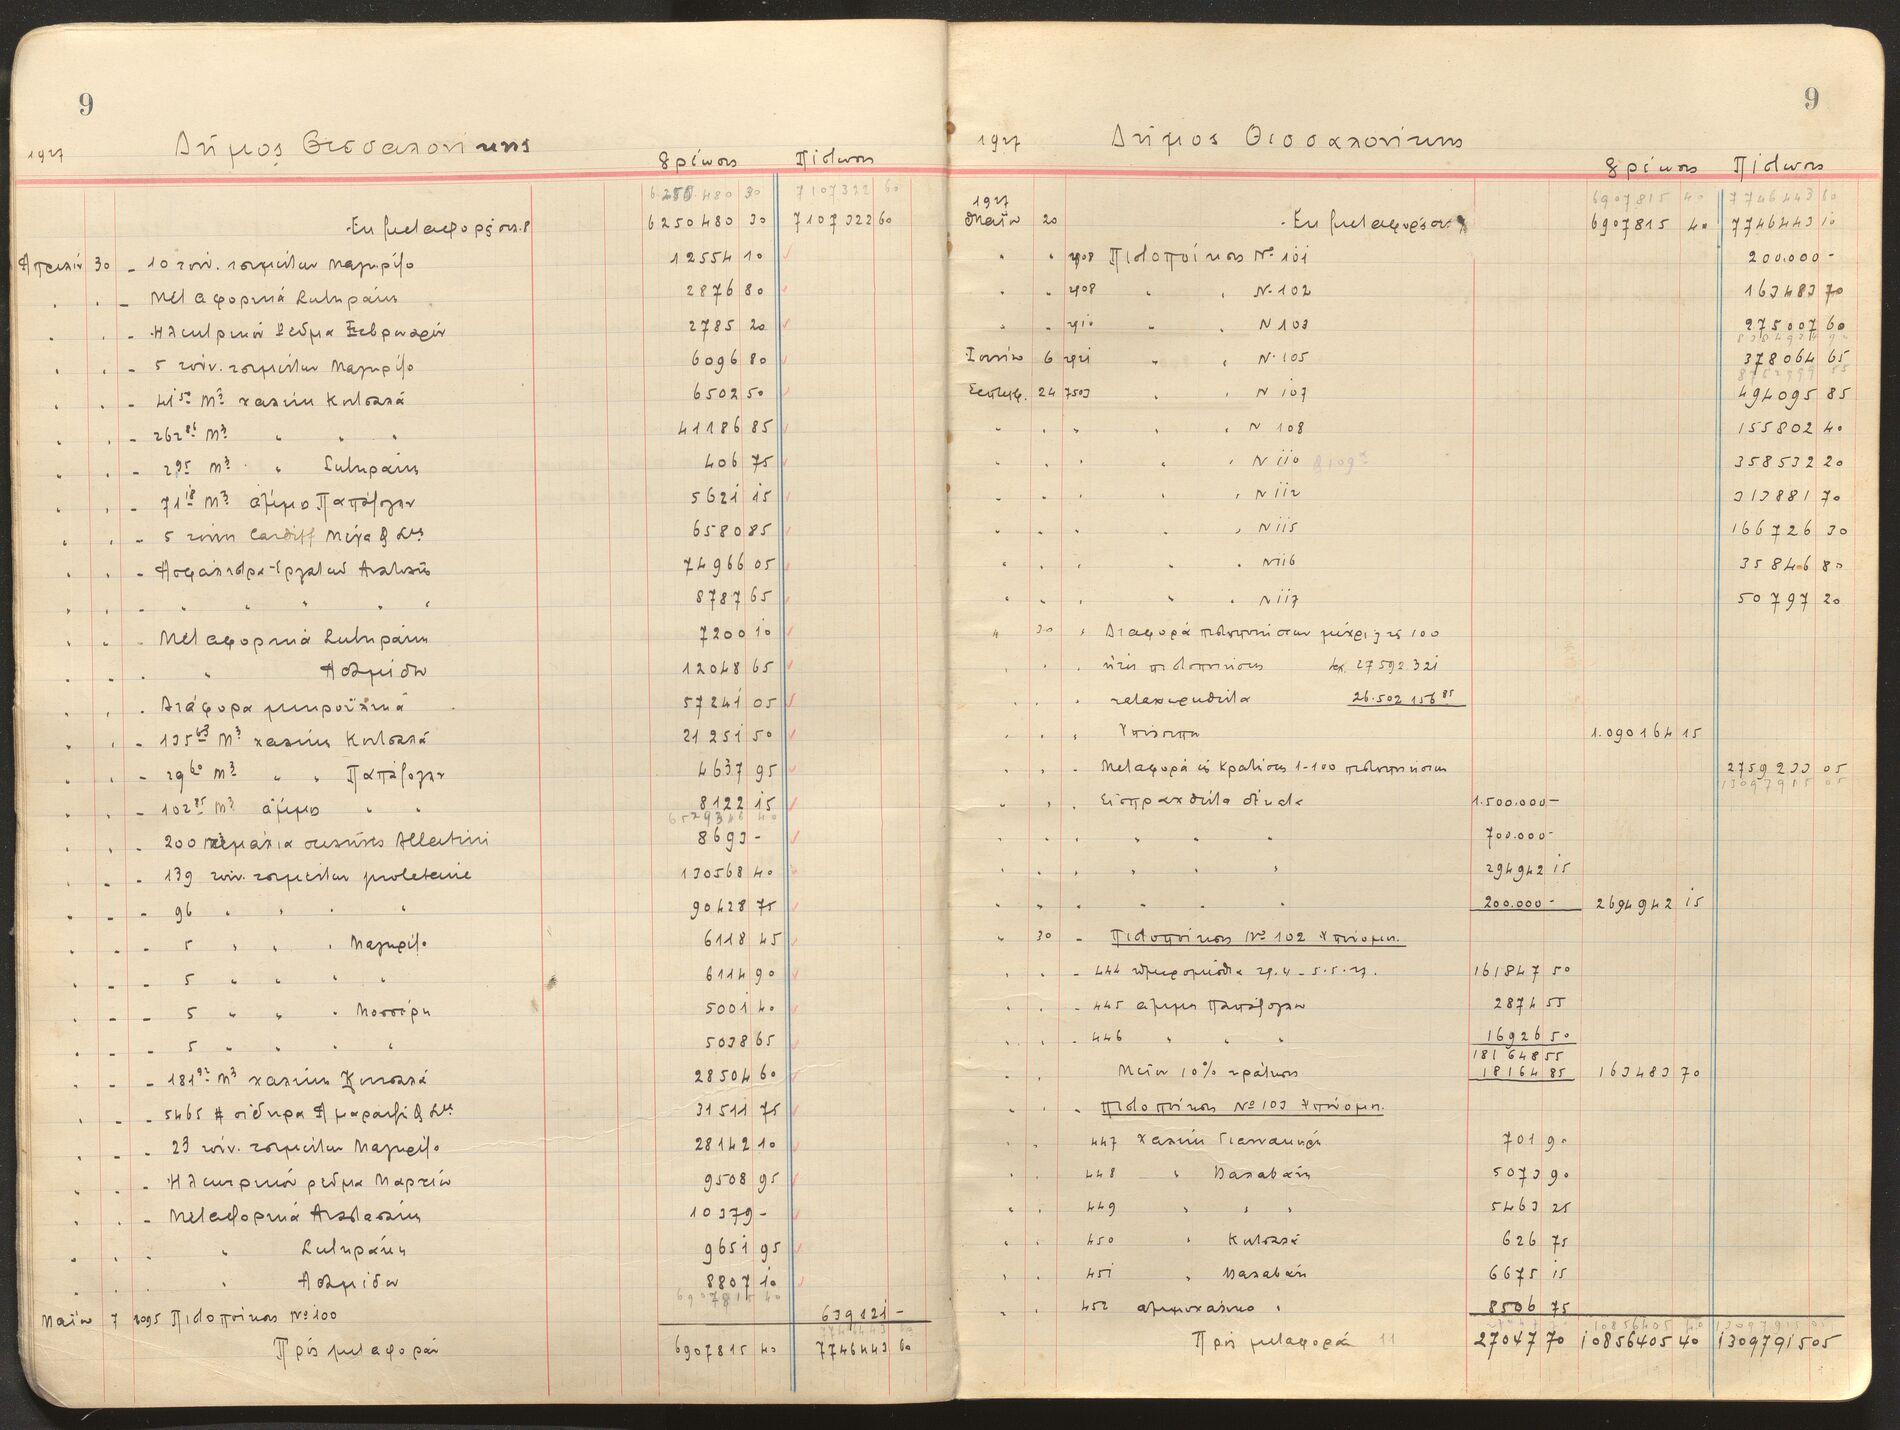 9
1927 Δήμος Θεσσαλονίκης
Χρέωσις Πίστωσις
6.250.480 30 7107322 60
Εκ μεταφοράς σελ. 8 6250480 30 7107322 60
Απριλίου 30 - 10 τόν. τσιμέντων Μαγκρίζο 12554 10
" " - Μεταφορικά Σωτηράκη 2876 80
" " - Ηλεκτρικόν ρεύμα Φεβρουαρίου 2785 20
" " - 5 τόν. τσιμέντων Μαγκρίζο 6096 80
" " - 41 50 m3 χαλίκι Κουτσαλά 6502 50
" " - 262 86 m3 " " " 41186 85
" " - 2 95 m3 " Σωτηράκη 406 75
" " - 71 18 m3 άμμο Παπάζογλου 5621 15
" " - 5 τόνοι Cardiff Μίχα & Σια 6580 85
" " - Ασφάλιστρα Εργατών Ανατολής 74966 05
" " - " " " " " 8787 65
" " - Μεταφορικά Σωτηράκη 7200 10
" " - " Ασλμίδου 12048 65
" " - Διάφορα μικροϋλικά 57241 05
" " - 135 63 m3 χαλίκι Κουτσαλά 21251 50
" " - 29 60 m3 " " Παπάζογλου 4637 95
" " - 102 85 m3 άμμος " " 8122 15
6529316 40
" " - 200 τεμάχια σωλήνες Allatini 8693 -
" " - 139 τόν. τσιμέντων 130568 40
" " - 96 " " " " 90428 75
" " - 5 " " " Μαγκρίζο 6118 45
" " - 5 " " " " 6114 90
" " - 5 " " " Μοσσέρη 5001 40
" " - 5 " " " " 5038 65
" " - 181 92 m3 χαλίκι Κουτσαλά 28504 60
" " - 5465 # σίδηρα Αμαράτζι & Σια 31511 75
" " - 23 τόν. τσιμέντων Μαγκρίζο 28142 10
" " - Ηλεκτρικόν ρεύμα Μαρτίου 9508 95
" " - Μεταφορικά Αναστασάκη 10379 -
" " " Σωτηράκη 9651 95
" " " Ασλμίδου 8807 10
6907815 40
Μαΐου 7 2095 Πιστοποίησις No 100 639121 -
7746443 60
Πρός μεταφοράν 6907815 40 7746443 60
9
1927 Δήμος Θεσσαλονίκης
Χρέωσις Πίστωσις
6907815 40 7746443 60
1927
Μαΐου 20 Εκ μεταφοράς σελ. 6907815 40 7746443 10
" " 2908 Πιστοποίησις No 101 200.000 -
" " 2908 " " N. 102 163483 70
" " 2910 " " N 103 275007 60
Ιουνίου 6 2921 " " N. 105 378064 65
8752999 55
Σεπτεμβ. 24 7503 " " N 107 494095 85
" " " " " N 108 155802 40
" " " " " N 110 358532 20
" " " " N 112 313881 70
" " " " " N 115 166726 30
" " " " " N 116 35846 80
" " " " " N 117 50797 20
" 30 " Διαφορά πιστοποιήσεων μέχρι της 100
" " " ήτοι πιστοποιήσεις 27592321
" " " 26.502.156 85
" " " Υπόλοιπον 1.090164 15
" " - Μεταφορά εις Κρατήσεις 1-100 πιστοποιήσεως 2759233 05
13097915 05
" " " Εισπραχθέντα έναντι 1.500.000 -
" " " " " " 700.000 -
" " " " " " 294942 15
" " " " " " 200.000 - 2694942 15
" 30 - Πιστοποίησις No 102 Υπόνομοι.
" " - 444 ημερομίσθια 29.4 - 5.5.27. 161847 50
" " - 445 άμμος Παπάζογλου 2874 55
" " - 446 " " " 16926 50
181648 55
" " Μείον 10% κράτησις 18164 85 163483 70
" " - Πιστοποίησις No 103 Υπόνομοι.
" " 447 χαλίκι Γιαννακιρή 701 90
" " 448 " Μαλαβάκη 5073 90
" " 449 " " " 5463 25
" " 450 " Κουτσαλά 626 75
" " 451 " Μαλαβάκη 6675 15
" " 452 αμμοχάλικο " 8506 75
10856405 40 13097915 05
Πρός μεταφοράν 11 27047 70 10856405 40 13097915 05